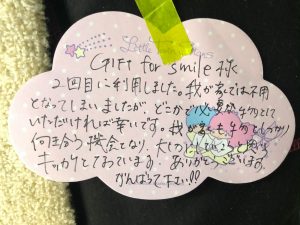 Little Twin Stars
Gift for smile 様
2回目に利用しました。我が家では不用
となってしまいましたが、どこかで必要な物として
いただければ幸いです。我が家も、物としっかり
向き合う機会となり、大切
キッカケとなっています。ありがとうございます。
がんばって下さい!!